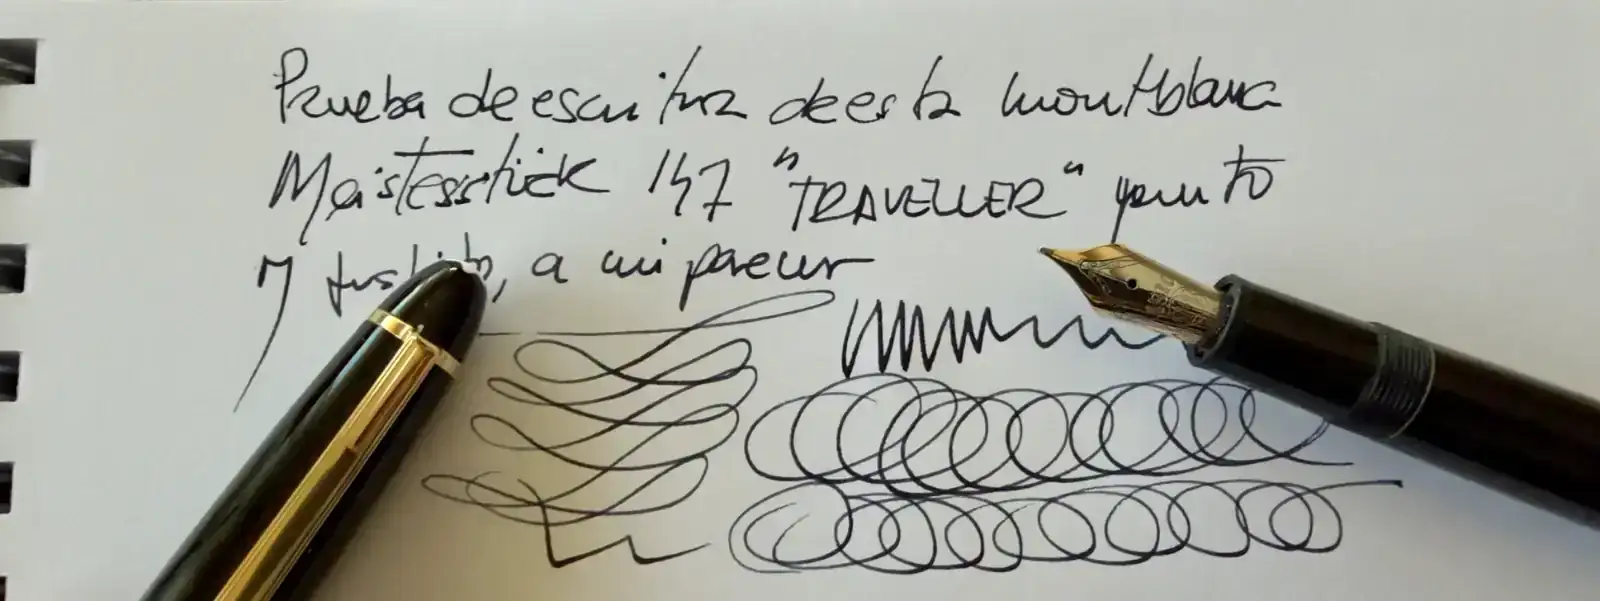 Prueba de escritura de esta montblanc
Meisterstück 147 "TRAVELLER" punto
M a mi parecer